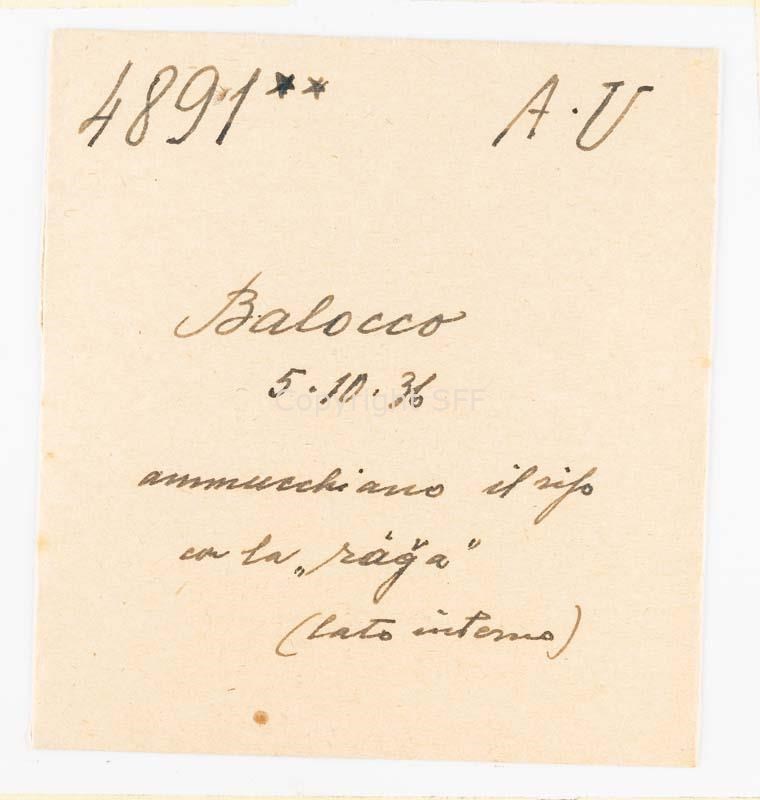 4891** A.U
Balocco
5.10.36
Copyright SFF
ammucchiano il riso
con la „räǧa"
(lato interno)